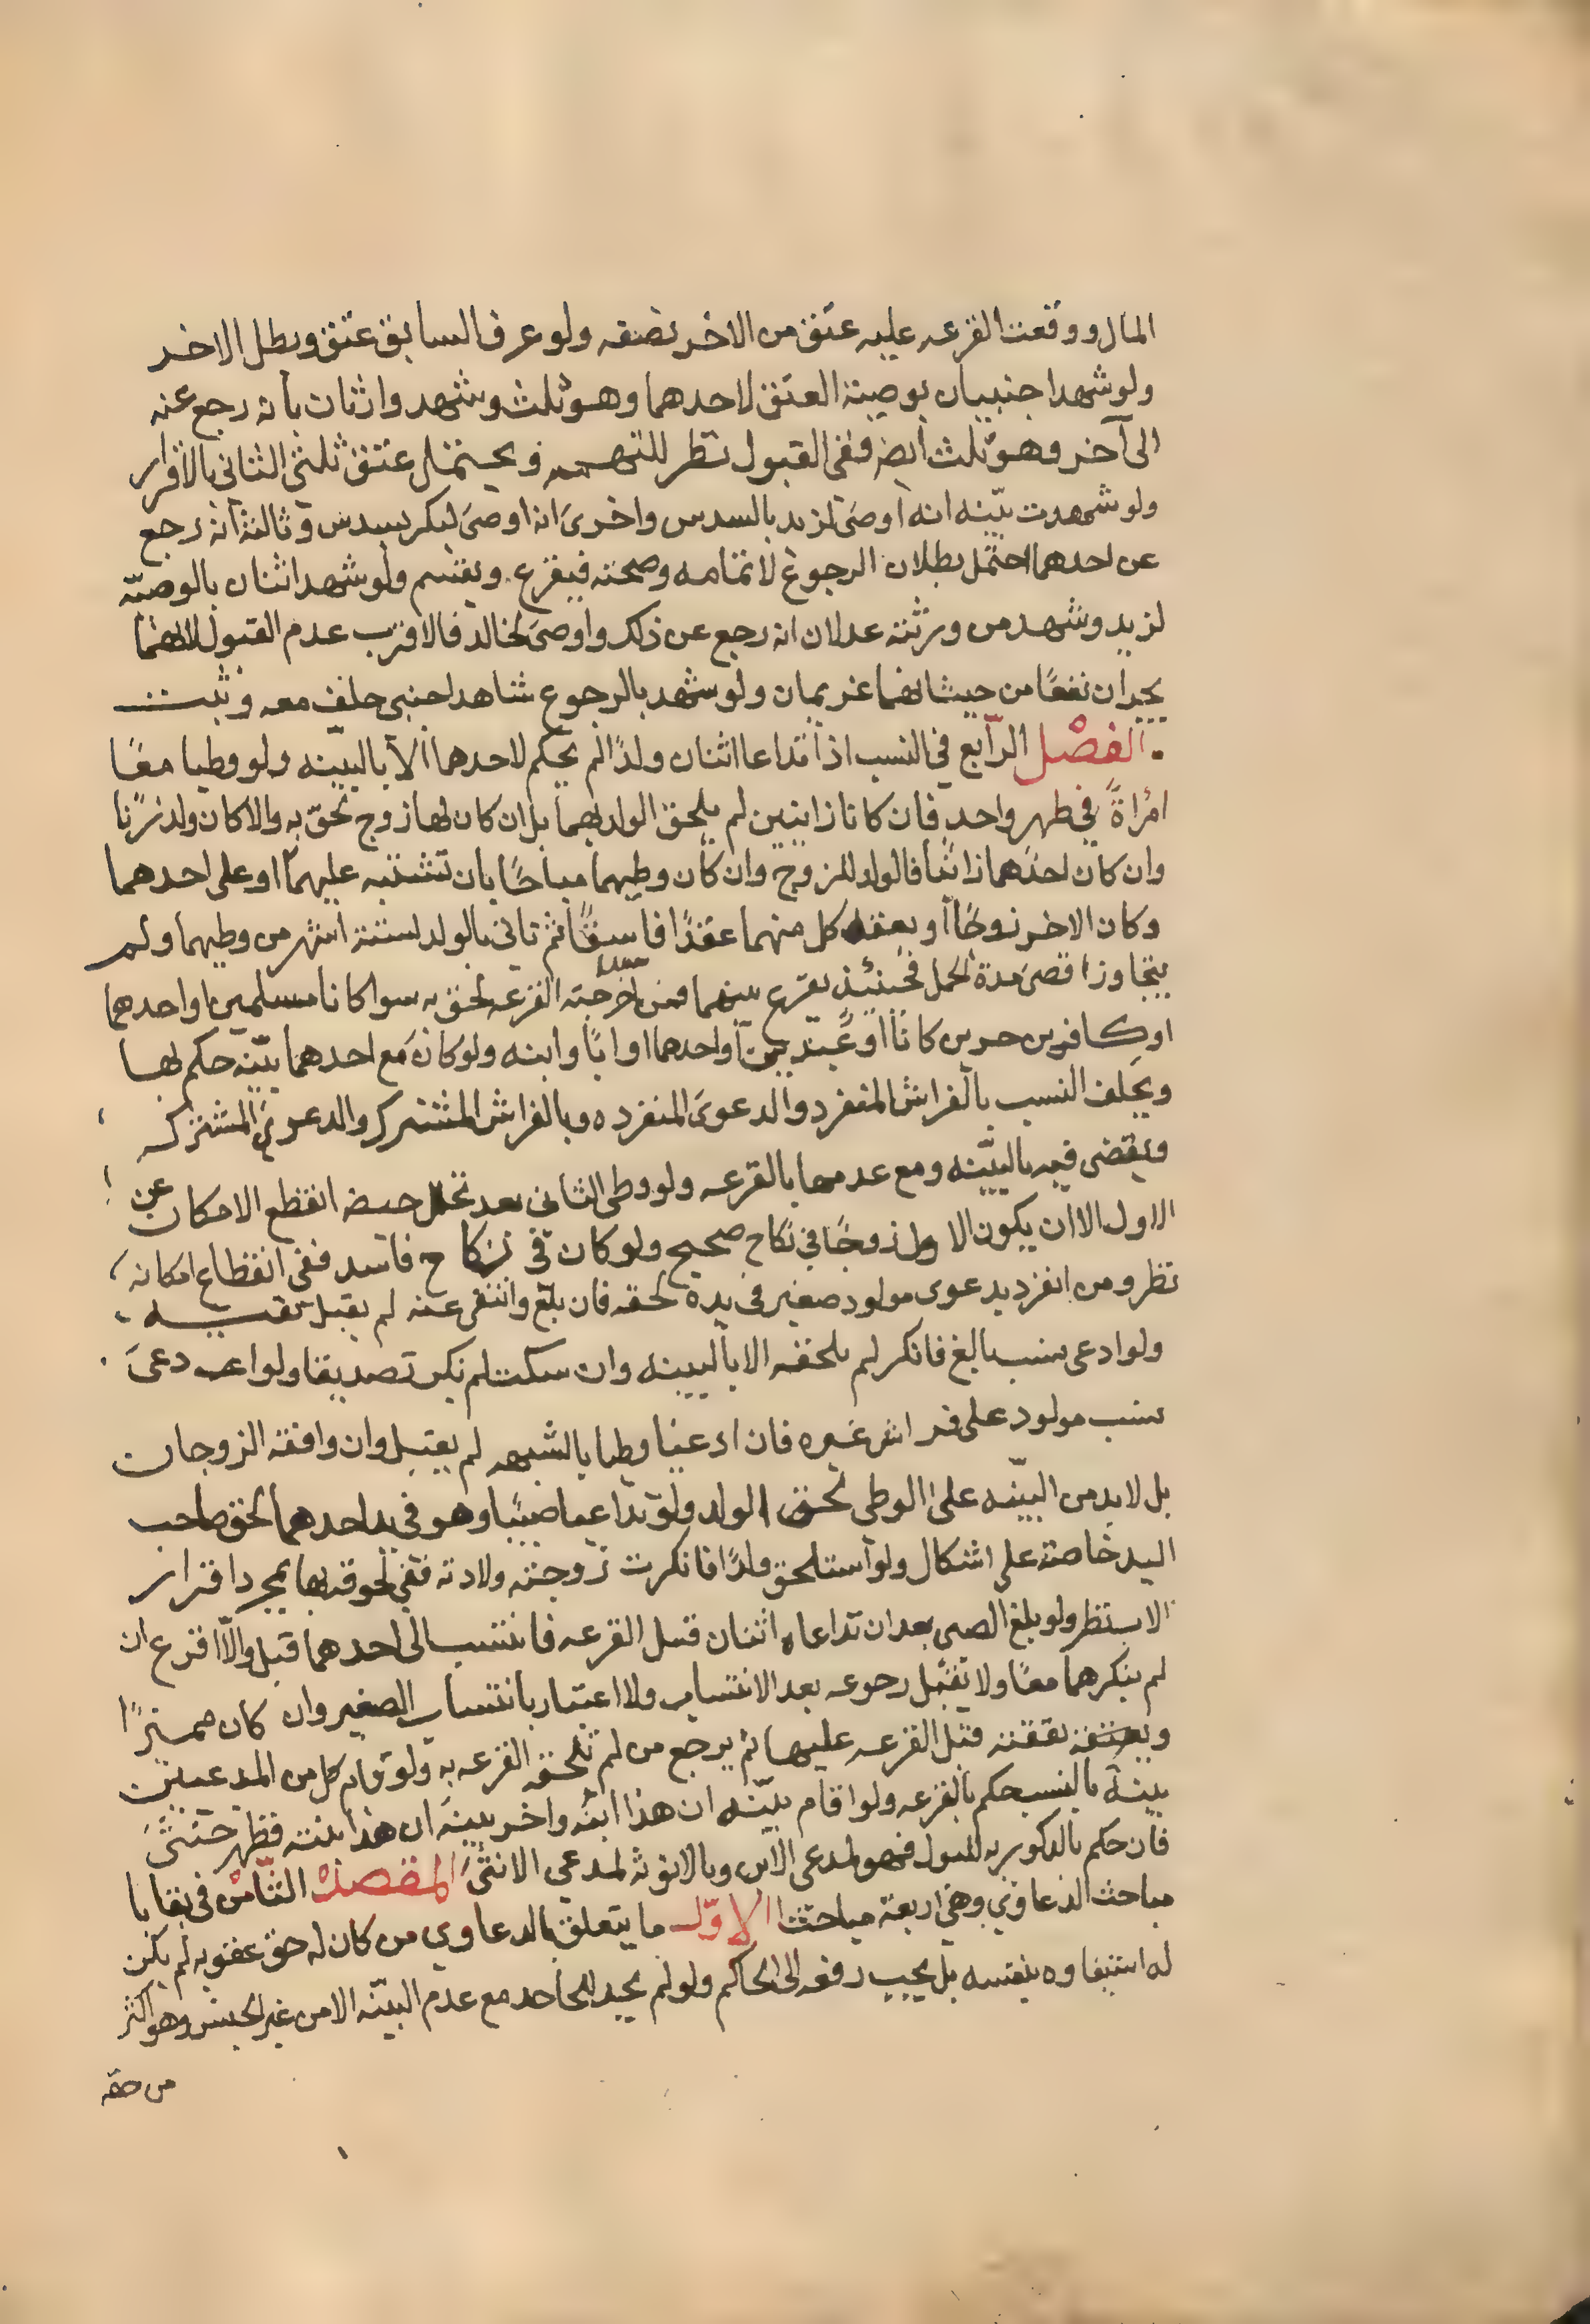 المال ووقعت القرعه عليه عتق من الاخر نصفه ولو عرف السابق عتق وبطل الاخر
ولو شهد اجنبيان بوصية العتق لاحدهما وهو ثلث وشهد وارثان بانه رجع عنه
الى آخر وهو ثلث ايضه ففى القبول نظر للتهمه ويحتمل عتق ثلثى الثانى بالاقرار
ولو شهدت بيّنه انه اوصى لزيد بالسدس واخرى انه اوصى لبكر بسدس وثالثة انه رجع
عن احدهما احتمل بطلان الرجوع لانتمامه وصحته فيقرع ويقتسم ولو شهد اثنان بالوصيّه
لزيد وشهد من ورثته عدلان انه رجع عن ذلك واوصى لخالد فالاقرب عدم القبول لانهما
يجران نفعًا من حيث انهما غريمان ولو شهد بالرجوع شاهد اجنبى حلف معه وثبت
الفصْل الرّابع في النسب اذا تداعا اثنان ولدًا لم يحكم لاحدهما الا بالبينه ولو وطيا معًا
امْراةً في طهر واحد فان كانا زانيين لم يلحق الولد بهما بل ان كان لها زوج لحق به والا كان ولد زنا
وان كان احدهما زانيًا فالولد للزوج وان كان وطيهما مباحًا بان تشتبه عليهما او على احدهما
وكان الاخر زوجًا او يعقد كل منهما عقدًا فاسدًا ثم تاتى بالولد لستة اشهر من وطيهما ولم
يتجاوز اقصى مدة الحمل فحينئذ يقرع بينهما فمن اخرجته القرعه لحق به سوا كانا مسلمين او احدهما
او كافرين حرين كانا او عبدين او احدهما او ابًا وابنه ولو كان مع احدهما بيّنه حكم لها
ويلحق النسب بالفراش المنفرد والدعوى المنفرده وبالفراش المشترك والدعوى المشتركه
ويقضى فيه بالبيّنه ومع عدمها بالقرعه ولو وطى الثانى بعد تخلل حيضه انقطع الامكان عن
الاول الا ان يكون الاول زوجًا في نكاح صحيح ولو كان في نكاح فاسد ففى انقطاع امكانه
نظر ومن انفرد بدعوى مولود صغير فى يده لحقه فان بلغ وانتفى عنه لم يقبل نفيه
ولو ادعى نسب بالغ فانكر لم يلحقه الا بالبينه وان سكت لم يكن تصديقا ولو ادعى
نسب مولود على فراش غيره فان ادعيا وطيا بالشبهه لم يقبل وان وافقه الزوجان
بل لا بد من البيّنه على الوطى لحق الولد ولو تداعيا صبيًا وهو في يد احدهما لحق صاحب
اليد خاصة على اشكال ولو استلحق ولدًا فانكرت زوجته ولادته ففى لحوقه بها بمجرد اقرار
الاب نظر ولو بلغ الصبى بعد ان تداعاه اثنان قبل القرعه فانتسب الى احدهما قبل والّا اقرع ان
لم ينكرهما معًا ولا يقبل رجوعه بعد الانتساب ولا اعتبار بانتساب الصغير وان كان مميزًا
ونفقته قبل القرعه عليهما ثم يرجع من لم تلحقه القرعه به ولو اقام كل من المدعيين
بينةً بالنسب حكم بالقرعه ولو اقام بيّنه ان هذا ابنه واخر بينه ان هذا بنته فظهر خنثى
فان حكم بالذكوريه للبول فهو لمدعى الابن وبالانوثه لمدعى الانثى المقصد الثامن فى بقايا
مباحث الدعاوي وهي اربعة مباحث الاوّل ما يتعلق بالدعاوي من كان له حق عقوبه لم يكن
له استيفاوه بنفسه بل يجب رفعه الى الحاكم ولو لم يجد للجاحد مع عدم البيّنه الا من غير الجنس وهو اكثر
من حقه